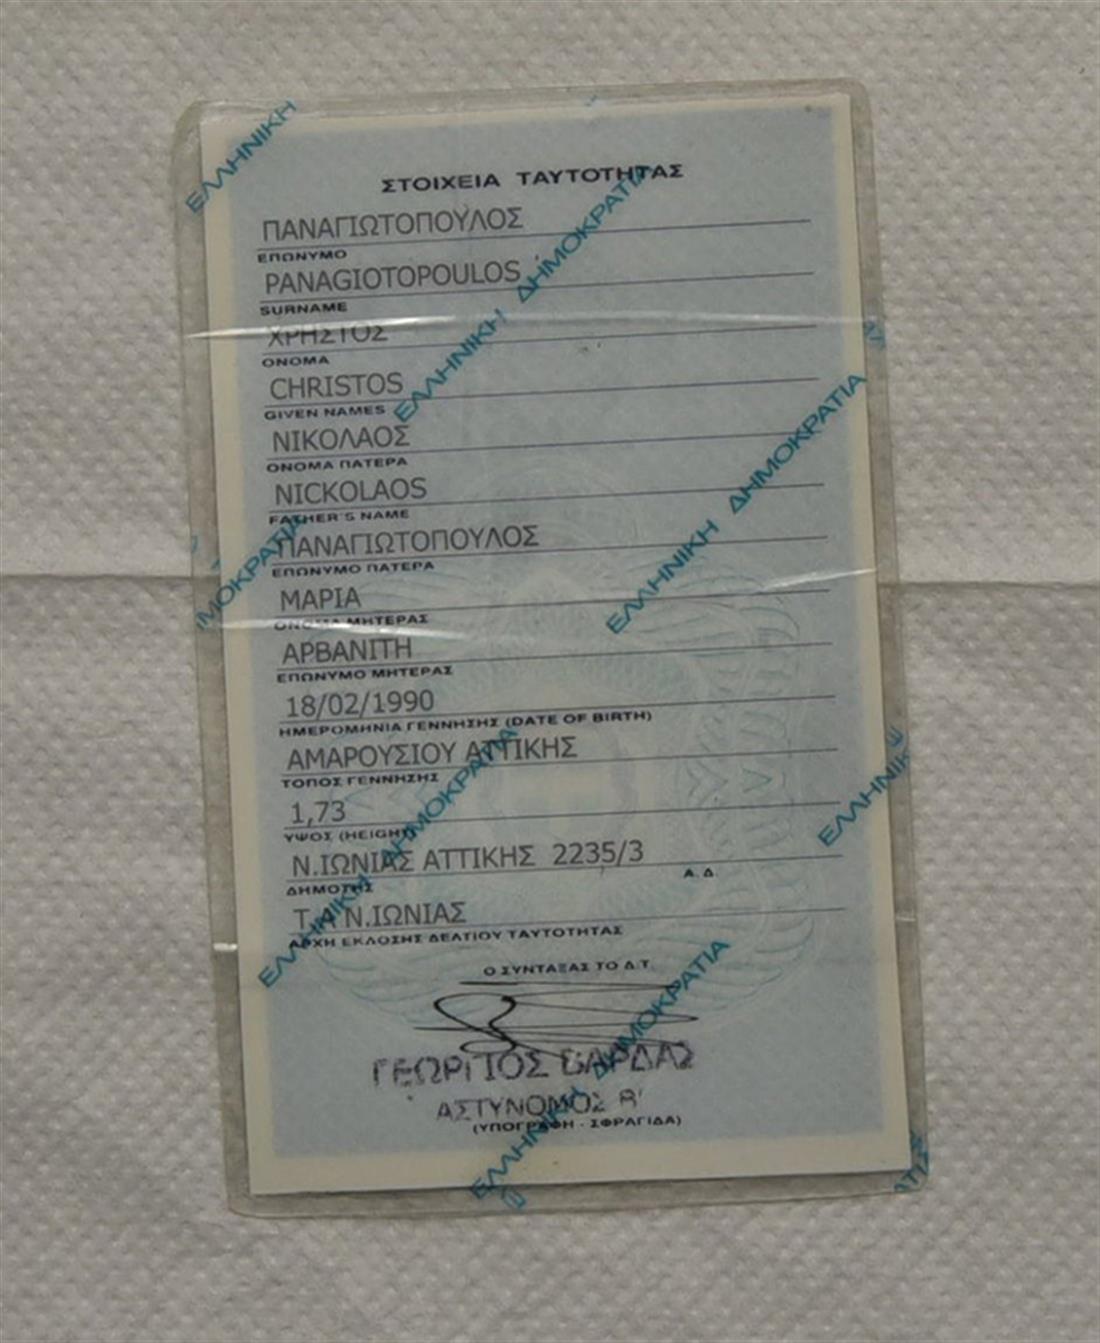 ΣΤΟΙΧΕΙΑ ΤΑΥΤΟΤΗΤΑΣ
ΠΑΝΑΓΙΩΤΟΠΟΥΛΟΣ
ΕΠΩΝΥΜΟ
PANAGIOTOPOULOS
SURNAME
ΧΡΗΣΤΟΣ
ΟΝΟΜΑ
CHRISTOS
GIVEN NAMES
ΝΙΚΟΛΑΟΣ
ΟΝΟΜΑ ΠΑΤΕΡΑ
NICKOLAOS
FATHER'S NAME
ΠΑΝΑΓΙΩΤΟΠΟΥΛΟΣ
ΕΠΩΝΥΜΟ ΠΑΤΕΡΑ
ΜΑΡΙΑ
ΟΝΟΜΑ ΜΗΤΕΡΑΣ
ΑΡΒΑΝΙΤΗ
ΕΠΩΝΥΜΟ ΜΗΤΕΡΑΣ
18/02/1990
ΗΜΕΡΟΜΗΝΙΑ ΓΕΝΝΗΣΗΣ (DATE OF BIRTH)
ΑΜΑΡΟΥΣΙΟΥ ΑΤΤΙΚΗΣ
ΤΟΠΟΣ ΓΕΝΝΗΣΗΣ
1,73
ΥΨΟΣ (HEIGHT)
Ν.ΙΩΝΙΑΣ ΑΤΤΙΚΗΣ 2235/3
ΔΗΜΟΤΗΣ Α.Δ.
Τ.Α Ν.ΙΩΝΙΑΣ
ΑΡΧΗ ΕΚΔΟΣΗΣ ΔΕΛΤΙΟΥ ΤΑΥΤΟΤΗΤΑΣ
Ο ΣΥΝΤΑΞΑΣ ΤΟ Δ.Τ.
ΓΕΩΡΓΙΟΣ ΒΑΡΔΑΣ
ΑΣΤΥΝΟΜΟΣ Β'
(ΥΠΟΓΡΑΦΗ - ΣΦΡΑΓΙΔΑ)
ΕΛΛΗΝΙΚΗ
ΕΛΛΗΝΙΚΗ ΔΗΜΟΚΡΑΤΙΑ
ΕΛΛΗΝΙΚΗ ΔΗΜΟΚΡΑΤΙΑ
ΗΜΟΚΡΑΤΙΑ
ΕΛΛΗΝΙΚΗ ΔΗΜΟΚΡΑΤΙΑ
ΕΛΛΗΝΙΚΗ
ΕΛΛΗΝΙΚΗ ΔΗΜΟΚΡΑΤΙΑ